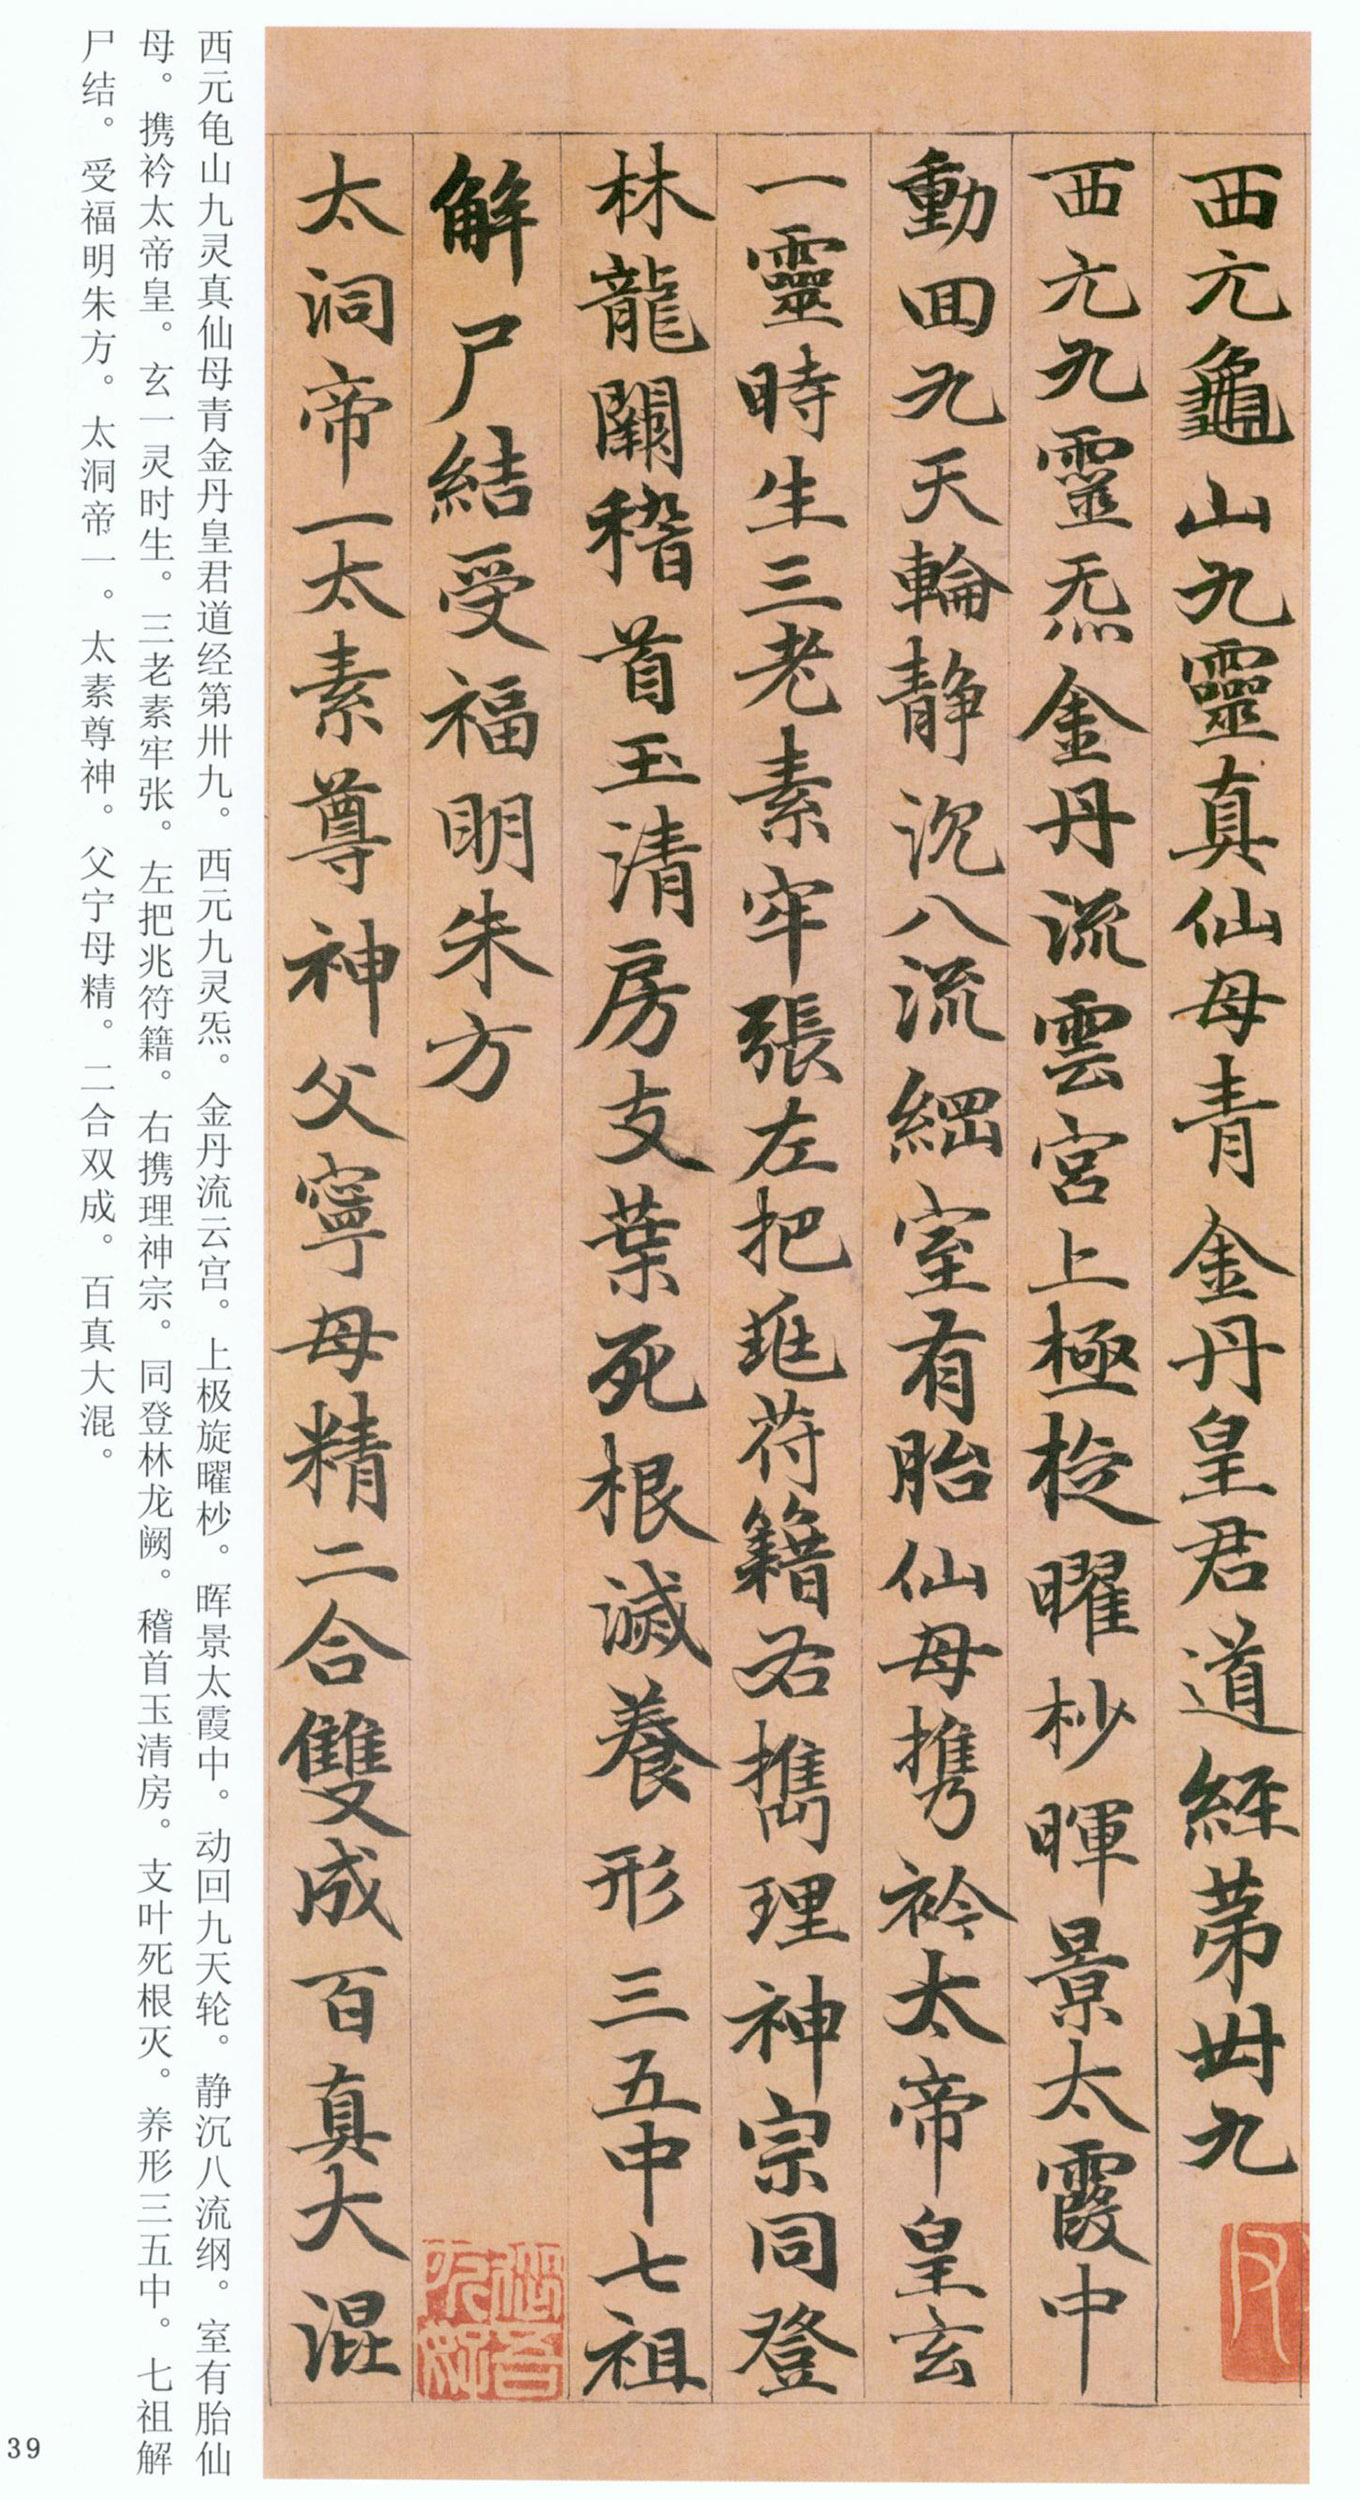 西元龜山九靈真仙母青金丹皇君道經苐卅九
西元九靈炁金丹流雲宮上極㨀曜杪暉景太霞中
動回九天輪静沉八流綱室有胎仙母携衿太帝皇玄
一靈時生三老素牢張左把兆符籍右携理神宗同登
林龍闕稽首玉清房支葉死根滅養形三五中七祖
解尸結受福明朱方
太洞帝一太素尊神父寧母精二合雙成百真大混
西元龟山九灵真仙母青金丹皇君道经第卅九。西元九灵炁。金丹流云宫。上极旋曜杪。晖景太霞中。动回九天轮。静沉八流纲。室有胎仙
母。携衿太帝皇。玄一灵时生。三老素牢张。左把兆符籍。右携理神宗。同登林龙阙。稽首玉清房。支叶死根灭。养形三五中。七祖解
尸结。受福明朱方。太洞帝一。太素尊神。父宁母精。二合双成。百真大混。
39